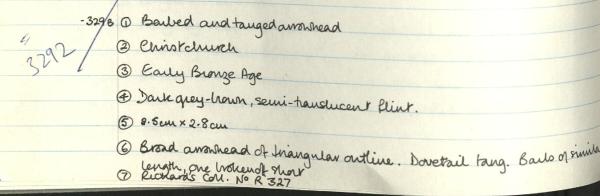 -3298 ① Barbed and tanged arrowhead
" 3292
② Christchurch
③ Early Bronze Age
④ Dark grey-brown, semi-translucent flint.
⑤ 2.8cm
⑥ Broad arrowhead of triangular outline. Dovetail tang. Barbs of similar
length, one broken off short
⑦ Richards Coll. No R 327